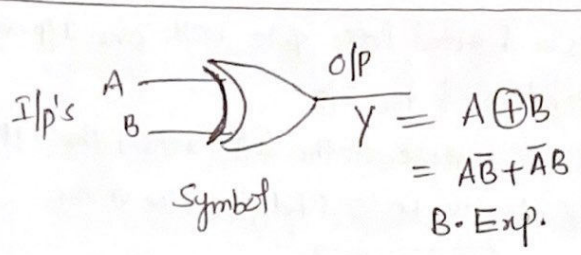 O/P
I/p's A
B
Y = A⊕B
= AB̅ + A̅B
Symbol
B. Exp.